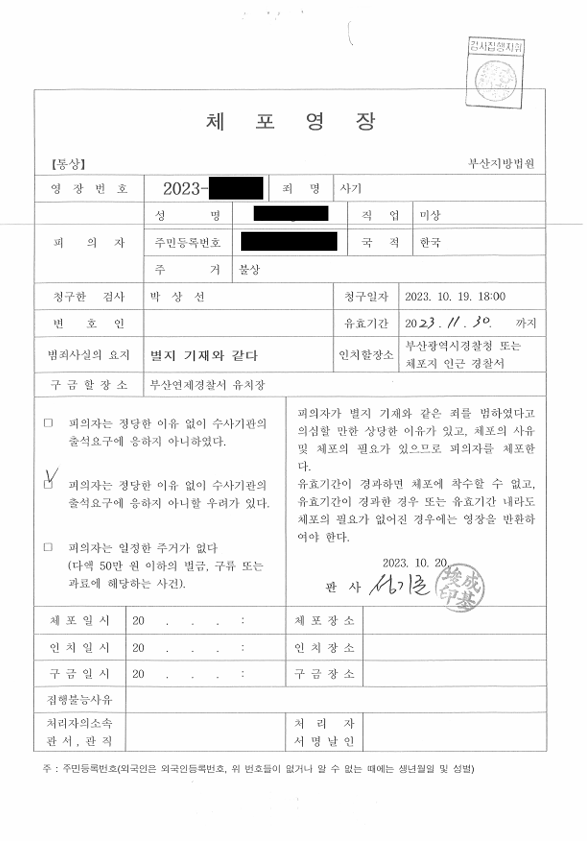 검사집행지휘
체 포 영 장
【통상】 부산지방법원
영 장 번 호 2023- 죄 명 사기
피 의 자
성 명 직 업 미상
주민등록번호 국 적 한국
주 거 불상
청구한 검사 박 상 선 청구일자 2023. 10. 19. 18:00
변 호 인 유효기간 2023. 11. 30. 까지
범죄사실의 요지 별지 기재와 같다 인치할장소 부산광역시경찰청 또는
체포지 인근 경찰서
구 금 할 장 소 부산연제경찰서 유치장
□ 피의자는 정당한 이유 없이 수사기관의
출석요구에 응하지 아니하였다.
□ 피의자는 정당한 이유 없이 수사기관의
출석요구에 응하지 아니할 우려가 있다.
□ 피의자는 일정한 주거가 없다
(다액 50만 원 이하의 벌금, 구류 또는
과료에 해당하는 사건).
피의자가 별지 기재와 같은 죄를 범하였다고
의심할 만한 상당한 이유가 있고, 체포의 사유
및 체포의 필요가 있으므로 피의자를 체포한
다.
유효기간이 경과하면 체포에 착수할 수 없고,
유효기간이 경과한 경우 또는 유효기간 내라도
체포의 필요가 없어진 경우에는 영장을 반환하
여야 한다.
2023. 10. 20.
판 사 성기준
成基
埈印
체 포 일 시 20 . . . : 체 포 장 소
인 치 일 시 20 . . . : 인 치 장 소
구 금 일 시 20 . . . : 구 금 장 소
집행불능사유
처리자의소속
관 서 , 관 직
처 리 자
서 명 날 인
주 : 주민등록번호(외국인은 외국인등록번호, 위 번호들이 없거나 알 수 없는 때에는 생년월일 및 성별)